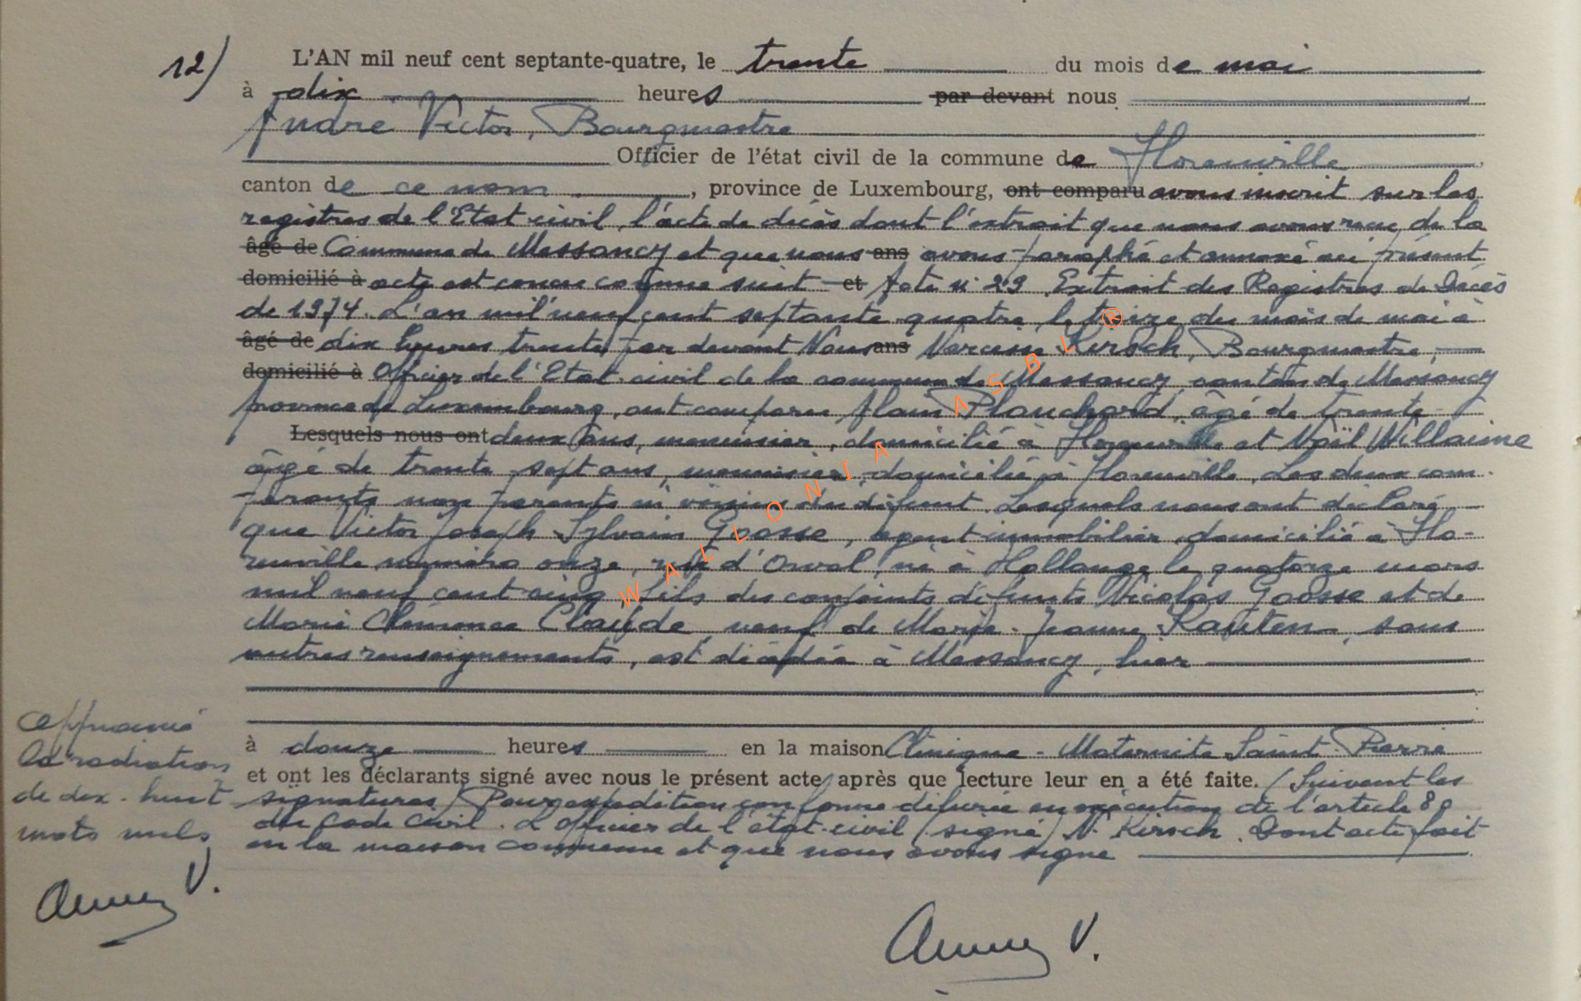 12/ L'AN mil neuf cent septante-quatre, le trente du mois de mai
à dix heures par devant nous
André Victor, Bourgmestre
Officier de l'état civil de la commune de Florenville
canton de ce nom, province de Luxembourg, ont comparu avons inscrit sur les
registres de l'Etat-civil, l'acte de décès dont l'extrait que nous avons reçu de la
âgé de Commune de Messancy et que nous ans avons paraphé et annexé au présent
domicilié à acte est conçu comme suit - et Acte n° 29 Extrait des Registres de Décès
de 1974. L'an mil neuf cent septante quatre le treize du mois de mai à
âgé de dix heures trente, par devant Nous ans Kirsch, Bourgmestre,
domicilié à Officier de l'Etat-civil de la commune de Messancy canton de Messancy
province de Luxembourg, ont comparu Alain Planchard, âgé de trente
Lesquels nous ont deux ans, menuisier, domicilié à Florenville et Noël Willaime
âgé de trente sept ans, menuisier, domicilié à Florenville. Les deux com-
parants non parents ni voisins du défunt. Lesquels nous ont déclaré
que Victor Joseph Sylvain Goosse, agent immobilier, domicilié à Flo-
renville numéro onze, rue d'Orval, né à Hollange le quatorze mars
mil neuf cent cinq, fils des conjoints défunts Nicolas Goosse et de
Marie Clémence Claude, veuf de Marie-Jeanne Kauten, sans
autres renseignements, est décédé à Messancy, hier
à douze heures en la maison Clinique - Maternité Saint-Pierre
et ont les déclarants signé avec nous le présent acte, après que lecture leur en a été faite. (Suivent les
signatures) Pour expédition conforme délivrée en exécution de l'article 80
du Code Civil. L'officier de l'état-civil (signé) N. Kirsch. Dont acte fait
en la maison commune et que nous avons signé
Approuvé
la radiation
de dix-huit
mots nuls
V.
V.
WALLONIA ASBL ®